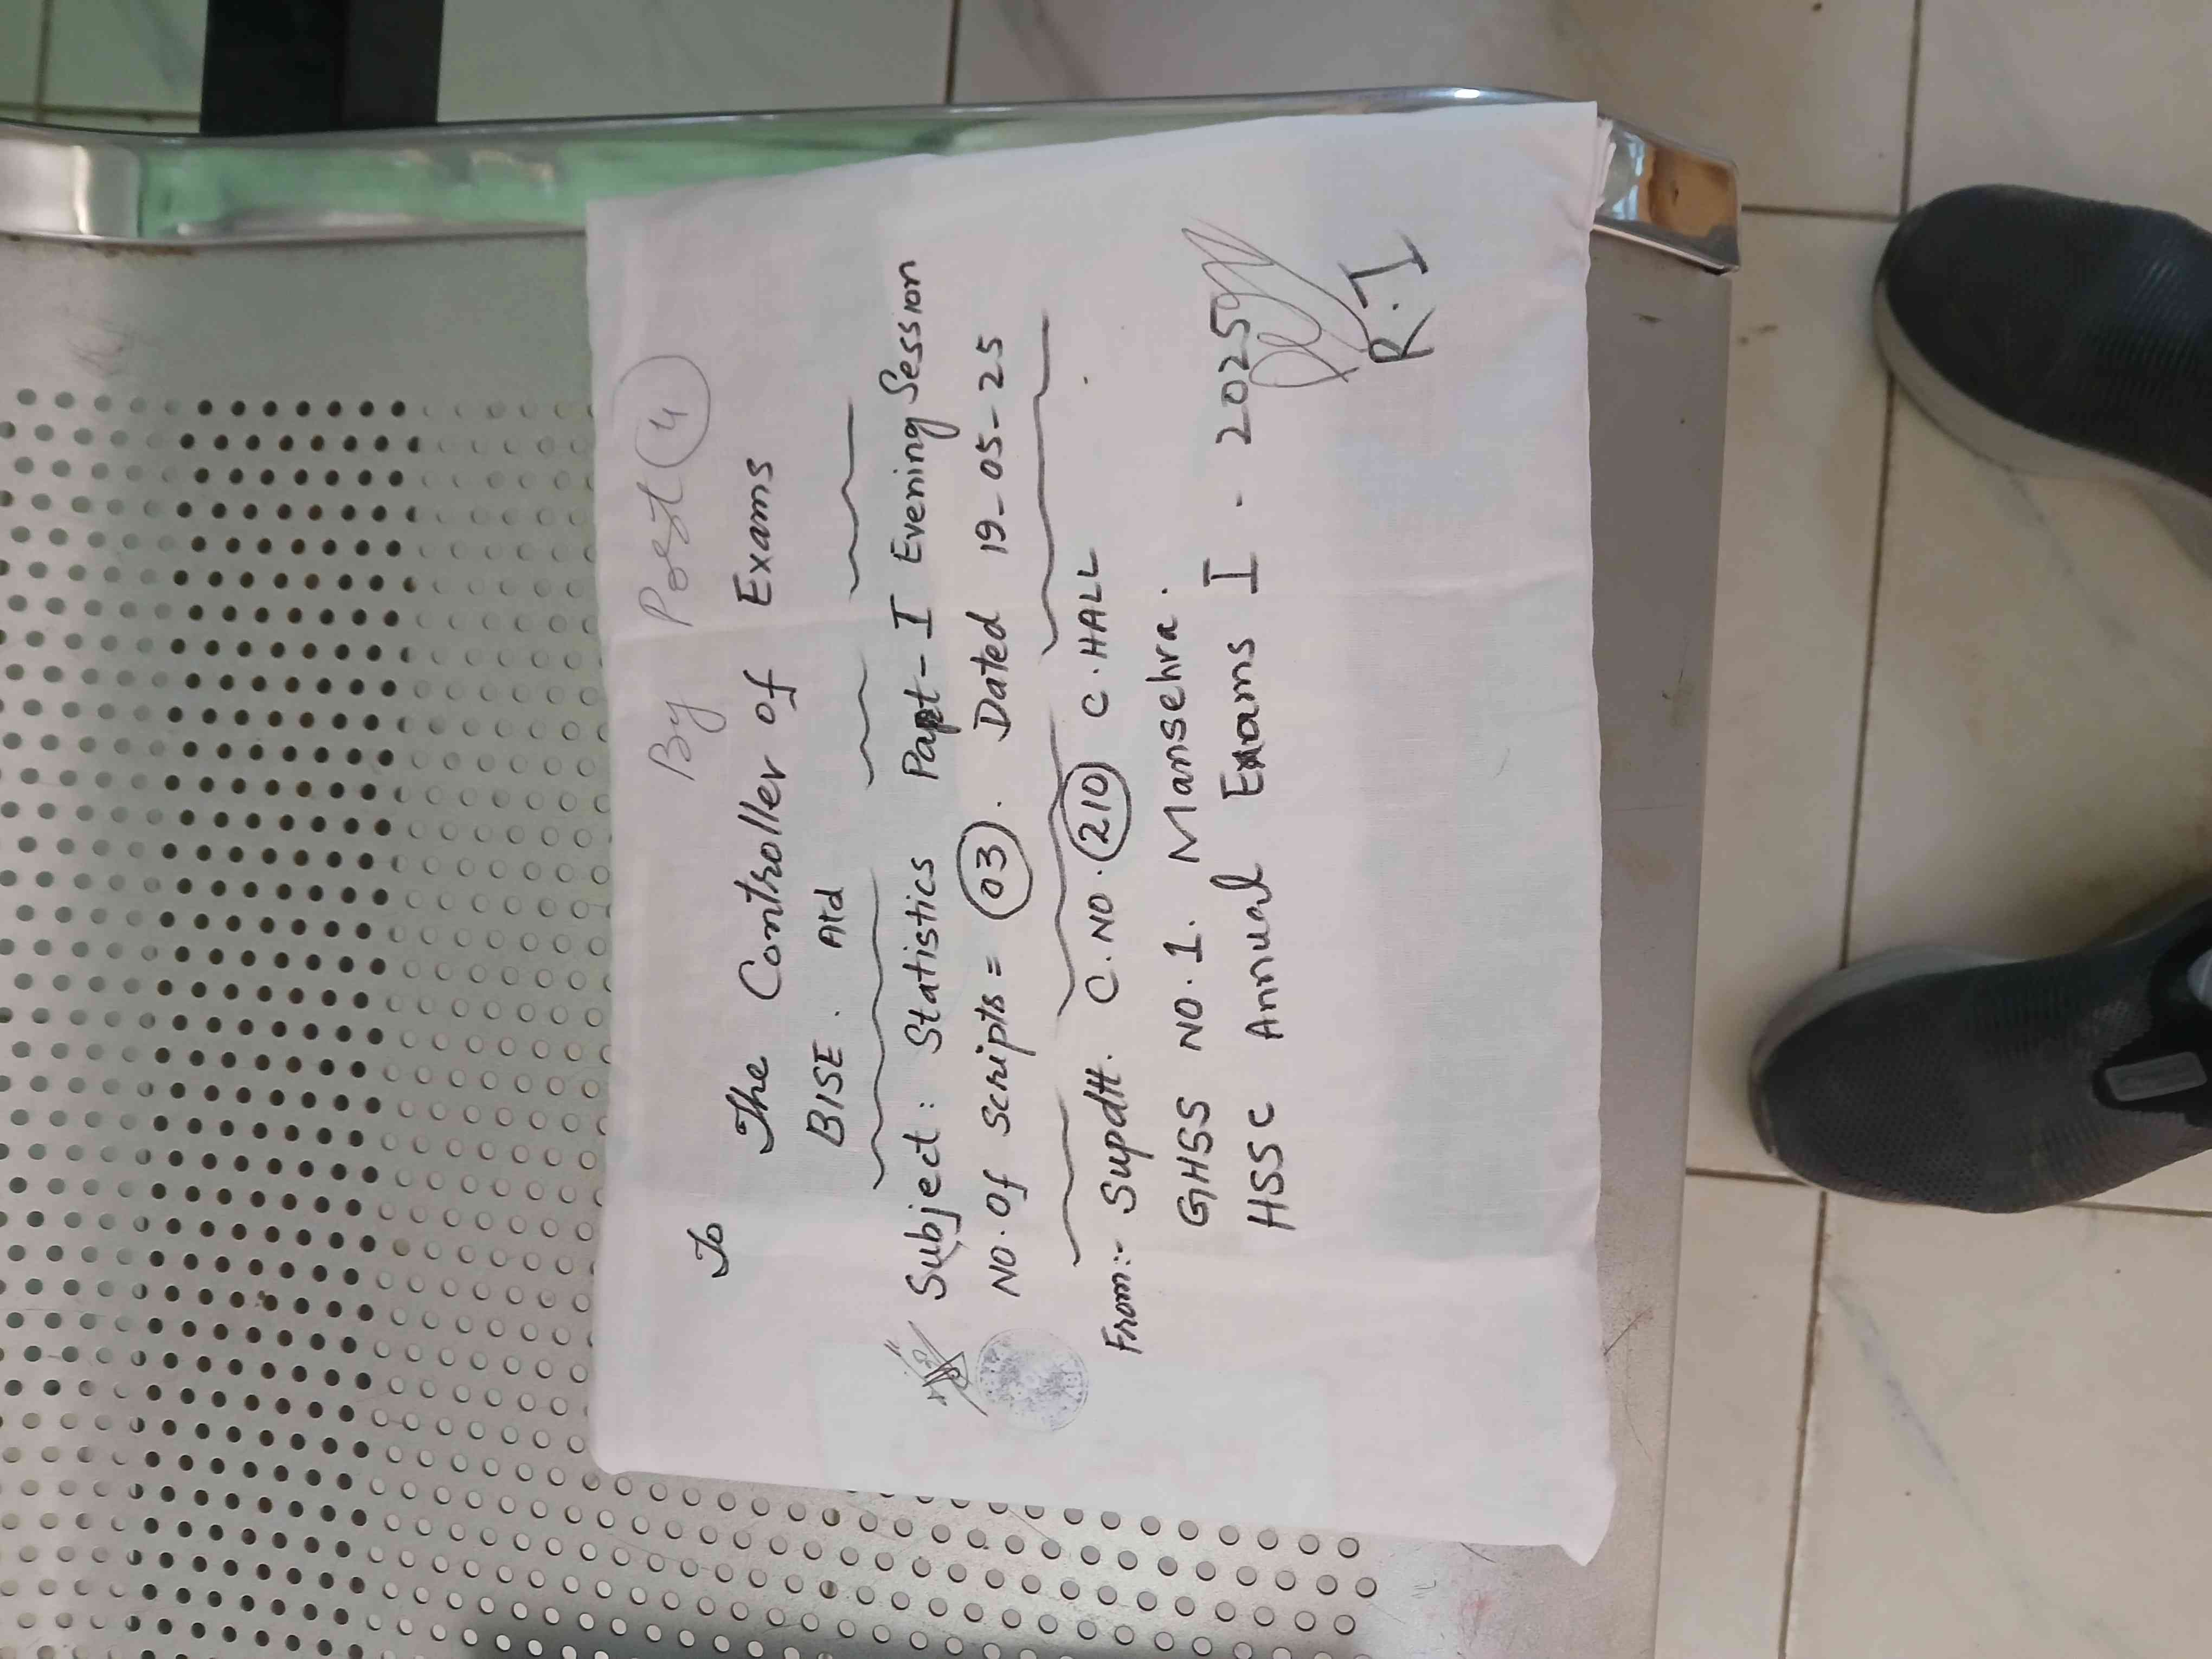 By Post 4
To
The Controller of Exams
BISE. Atd
Subject: Statistics Part-I Evening Session
NO. Of Scripts = 03. Dated 19-05-25
From:- Supdtt. C.NO. 210 C.HALL
GHSS NO.1. Mansehra.
HSSC Annual Exams I. - 2025
R.I